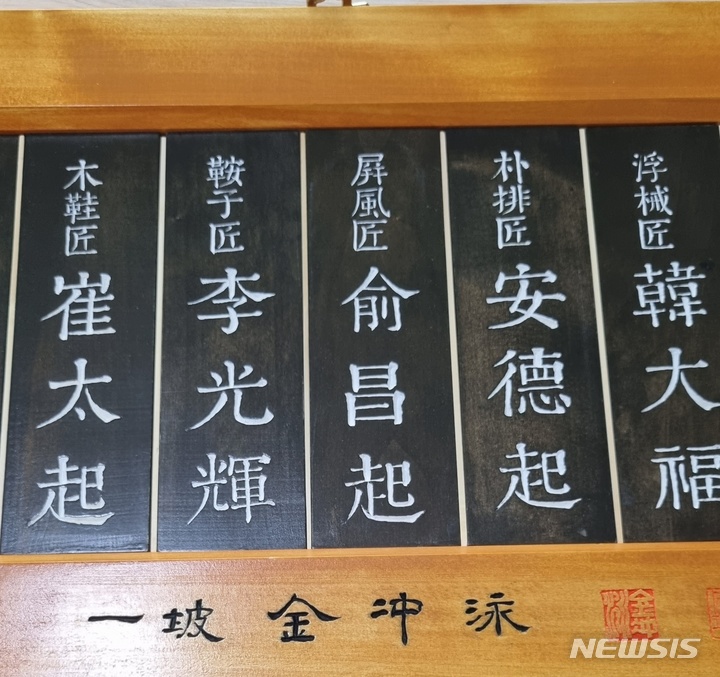 浮械匠 韓大福
朴排匠 安德起
屛風匠 俞昌起
鞍子匠 李光輝
木鞋匠 崔太起
一坡 金冲泳
NEWSIS